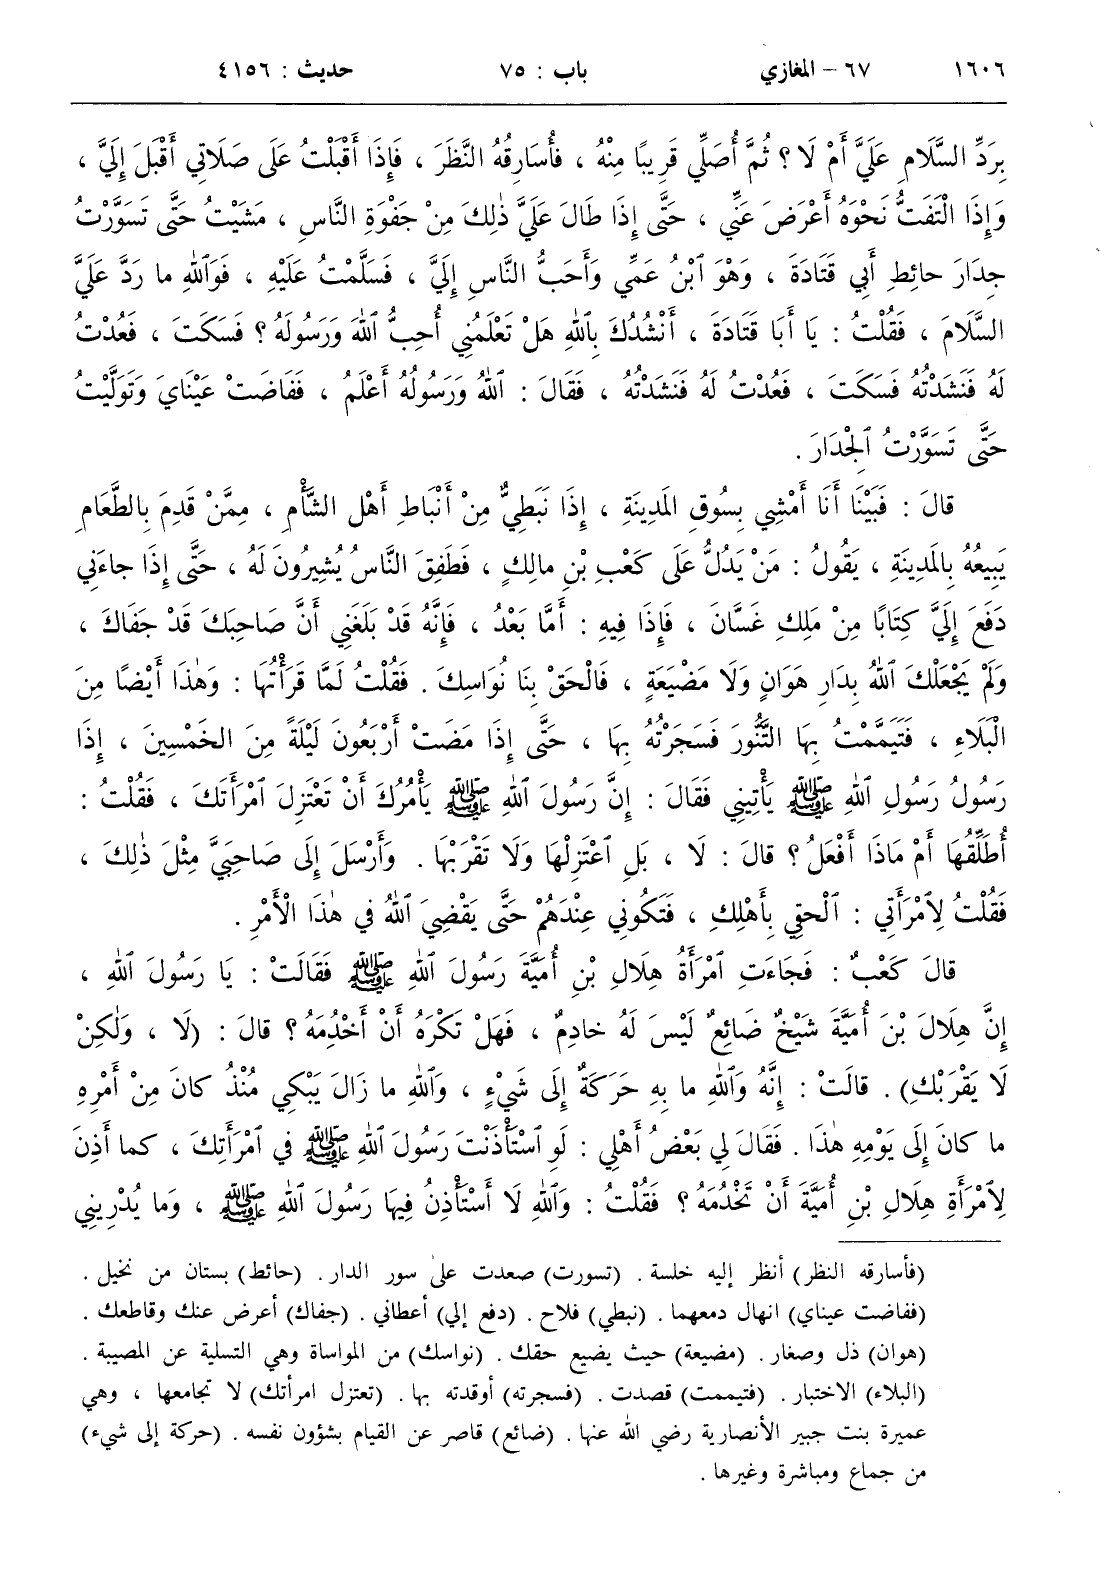 ١٦٠٦ ٦٧ – المغازي باب : ٧٥ حديث : ٤١٥٦
بِرَدِّ السَّلَامِ عَلَيَّ أَمْ لَا ؟ ثُمَّ أُصَلِّي قَرِيبًا مِنْهُ ، فَأُسَارِقُهُ النَّظَرَ ، فَإِذَا أَقْبَلْتُ عَلَى صَلَاتِي أَقْبَلَ إِلَيَّ ،
وَإِذَا الْتَفَتُّ نَحْوَهُ أَعْرَضَ عَنِّي ، حَتَّى إِذَا طَالَ عَلَيَّ ذٰلِكَ مِنْ جَفْوَةِ النَّاسِ ، مَشَيْتُ حَتَّى تَسَوَّرْتُ
جِدَارَ حائِطِ أَبِي قَتَادَةَ ، وَهْوَ ٱبْنُ عَمِّي وَأَحَبُّ النَّاسِ إِلَيَّ ، فَسَلَّمْتُ عَلَيْهِ ، فَوَٱللهِ ما رَدَّ عَلَيَّ
السَّلَامَ ، فَقُلْتُ : يَا أَبَا قَتَادَةَ ، أَنْشُدُكَ بِٱللهِ هَلْ تَعْلَمُنِي أُحِبُّ ٱللهَ وَرَسُولَهُ ؟ فَسَكَتَ ، فَعُدْتُ
لَهُ فَنَشَدْتُهُ فَسَكَتَ ، فَعُدْتُ لَهُ فَنَشَدْتُهُ ، فَقَالَ : ٱللهُ وَرَسُولُهُ أَعْلَمُ ، فَفَاضَتْ عَيْنَايَ وَتَوَلَّيْتُ
حَتَّى تَسَوَّرْتُ ٱلْجِدَارَ .
قالَ : فَبَيْنَا أَنَا أَمْشِي بِسُوقِ المَدِينَةِ ، إِذَا نَبَطِيٌّ مِنْ أَنْبَاطِ أَهْلِ الشَّأْمِ ، مِمَّنْ قَدِمَ بِالطَّعَامِ
يَبِيعُهُ بِالمَدِينَةِ ، يَقُولُ : مَنْ يَدُلُّ عَلَى كَعْبِ بْنِ مالِكٍ ، فَطَفِقَ النَّاسُ يُشِيرُونَ لَهُ ، حَتَّى إِذَا جاءَنِي
دَفَعَ إِلَيَّ كِتَابًا مِنْ مَلِكِ غَسَّانَ ، فَإِذَا فِيهِ : أَمَّا بَعْدُ ، فَإِنَّهُ قَدْ بَلَغَنِي أَنَّ صَاحِبَكَ قَدْ جَفَاكَ ،
وَلَمْ يَجْعَلْكَ ٱللهُ بِدَارِ هَوَانٍ وَلَا مَضْيَعَةٍ ، فَالْحَقْ بِنَا نُوَاسِكَ . فَقُلْتُ لَمَّا قَرَأْتُهَا : وَهٰذَا أَيْضًا مِنَ
الْبَلَاءِ ، فَتَيَمَّمْتُ بِهَا التَّنُّورَ فَسَجَرْتُهُ بِهَا ، حَتَّى إِذَا مَضَتْ أَرْبَعُونَ لَيْلَةً مِنَ الخَمْسِينَ ، إِذَا
رَسُولُ رَسُولِ ٱللهِ ﷺ يَأْتِينِي فَقَالَ : إِنَّ رَسُولَ ٱللهِ ﷺ يَأْمُرُكَ أَنْ تَعْتَزِلَ ٱمْرَأَتَكَ ، فَقُلْتُ :
أُطَلِّقُهَا أَمْ مَاذَا أَفْعَلُ ؟ قالَ : لَا ، بَلِ ٱعْتَزِلْهَا وَلَا تَقْرَبْهَا . وَأَرْسَلَ إِلَى صَاحِبَيَّ مِثْلَ ذٰلِكَ ،
فَقُلْتُ لِٱمْرَأَتِي : ٱلْحَقِي بِأَهْلِكِ ، فَتَكُونِي عِنْدَهُمْ حَتَّى يَقْضِيَ ٱللهُ فِي هٰذَا الْأَمْرِ .
قالَ كَعْبٌ : فَجَاءَتِ ٱمْرَأَةُ هِلَالِ بْنِ أُمَيَّةَ رَسُولَ ٱللهِ ﷺ فَقَالَتْ : يَا رَسُولَ ٱللهِ ،
إِنَّ هِلَالَ بْنَ أُمَيَّةَ شَيْخٌ ضَائِعٌ لَيْسَ لَهُ خادِمٌ ، فَهَلْ تَكْرَهُ أَنْ أَخْدُمَهُ ؟ قالَ : (لَا ، وَلٰكِنْ
لَا يَقْرَبْكِ) . قالَتْ : إِنَّهُ وَٱللهِ ما بِهِ حَرَكَةٌ إِلَى شَيْءٍ ، وَٱللهِ ما زَالَ يَبْكِي مُنْذُ كانَ مِنْ أَمْرِهِ
ما كانَ إِلَى يَوْمِهِ هٰذَا . فَقَالَ لِي بَعْضُ أَهْلِي : لَوِ ٱسْتَأْذَنْتَ رَسُولَ ٱللهِ ﷺ فِي ٱمْرَأَتِكَ ، كما أَذِنَ
لِٱمْرَأَةِ هِلَالِ بْنِ أُمَيَّةَ أَنْ تَخْدُمَهُ ؟ فَقُلْتُ : وَٱللهِ لَا أَسْتَأْذِنُ فِيهَا رَسُولَ ٱللهِ ﷺ ، وَما يُدْرِينِي
(فأسارقه النظر) أنظر إليه خلسة . (تسورت) صعدت على سور الدار . (حائط) بستان من نخيل .
(ففاضت عيناي) انهال دمعهما . (نبطي) فلاح . (دفع إلي) أعطاني . (جفاك) أعرض عنك وقاطعك .
(هوان) ذل وصغار . (مضيعة) حيث يضيع حقك . (نواسك) من المواساة وهي التسلية عن المصيبة .
(البلاء) الاختبار . (فتيممت) قصدت . (فسجرته) أوقدته بها . (تعتزل امرأتك) لا تجامعها ، وهي
عميرة بنت جبير الأنصارية رضي الله عنها . (ضائع) قاصر عن القيام بشؤون نفسه . (حركة إلى شيء)
من جماع ومباشرة وغيرها .